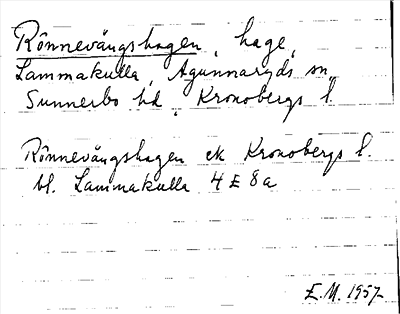 Rönnevångshagen, hage,
Lammakulla, Agunnaryds sn,
Sunnerbo hd, Kronobergs l.
Rönnevångshagen ek Kronobergs l.
bl. Lammakulla 4 E 8 a
E.M. 1957